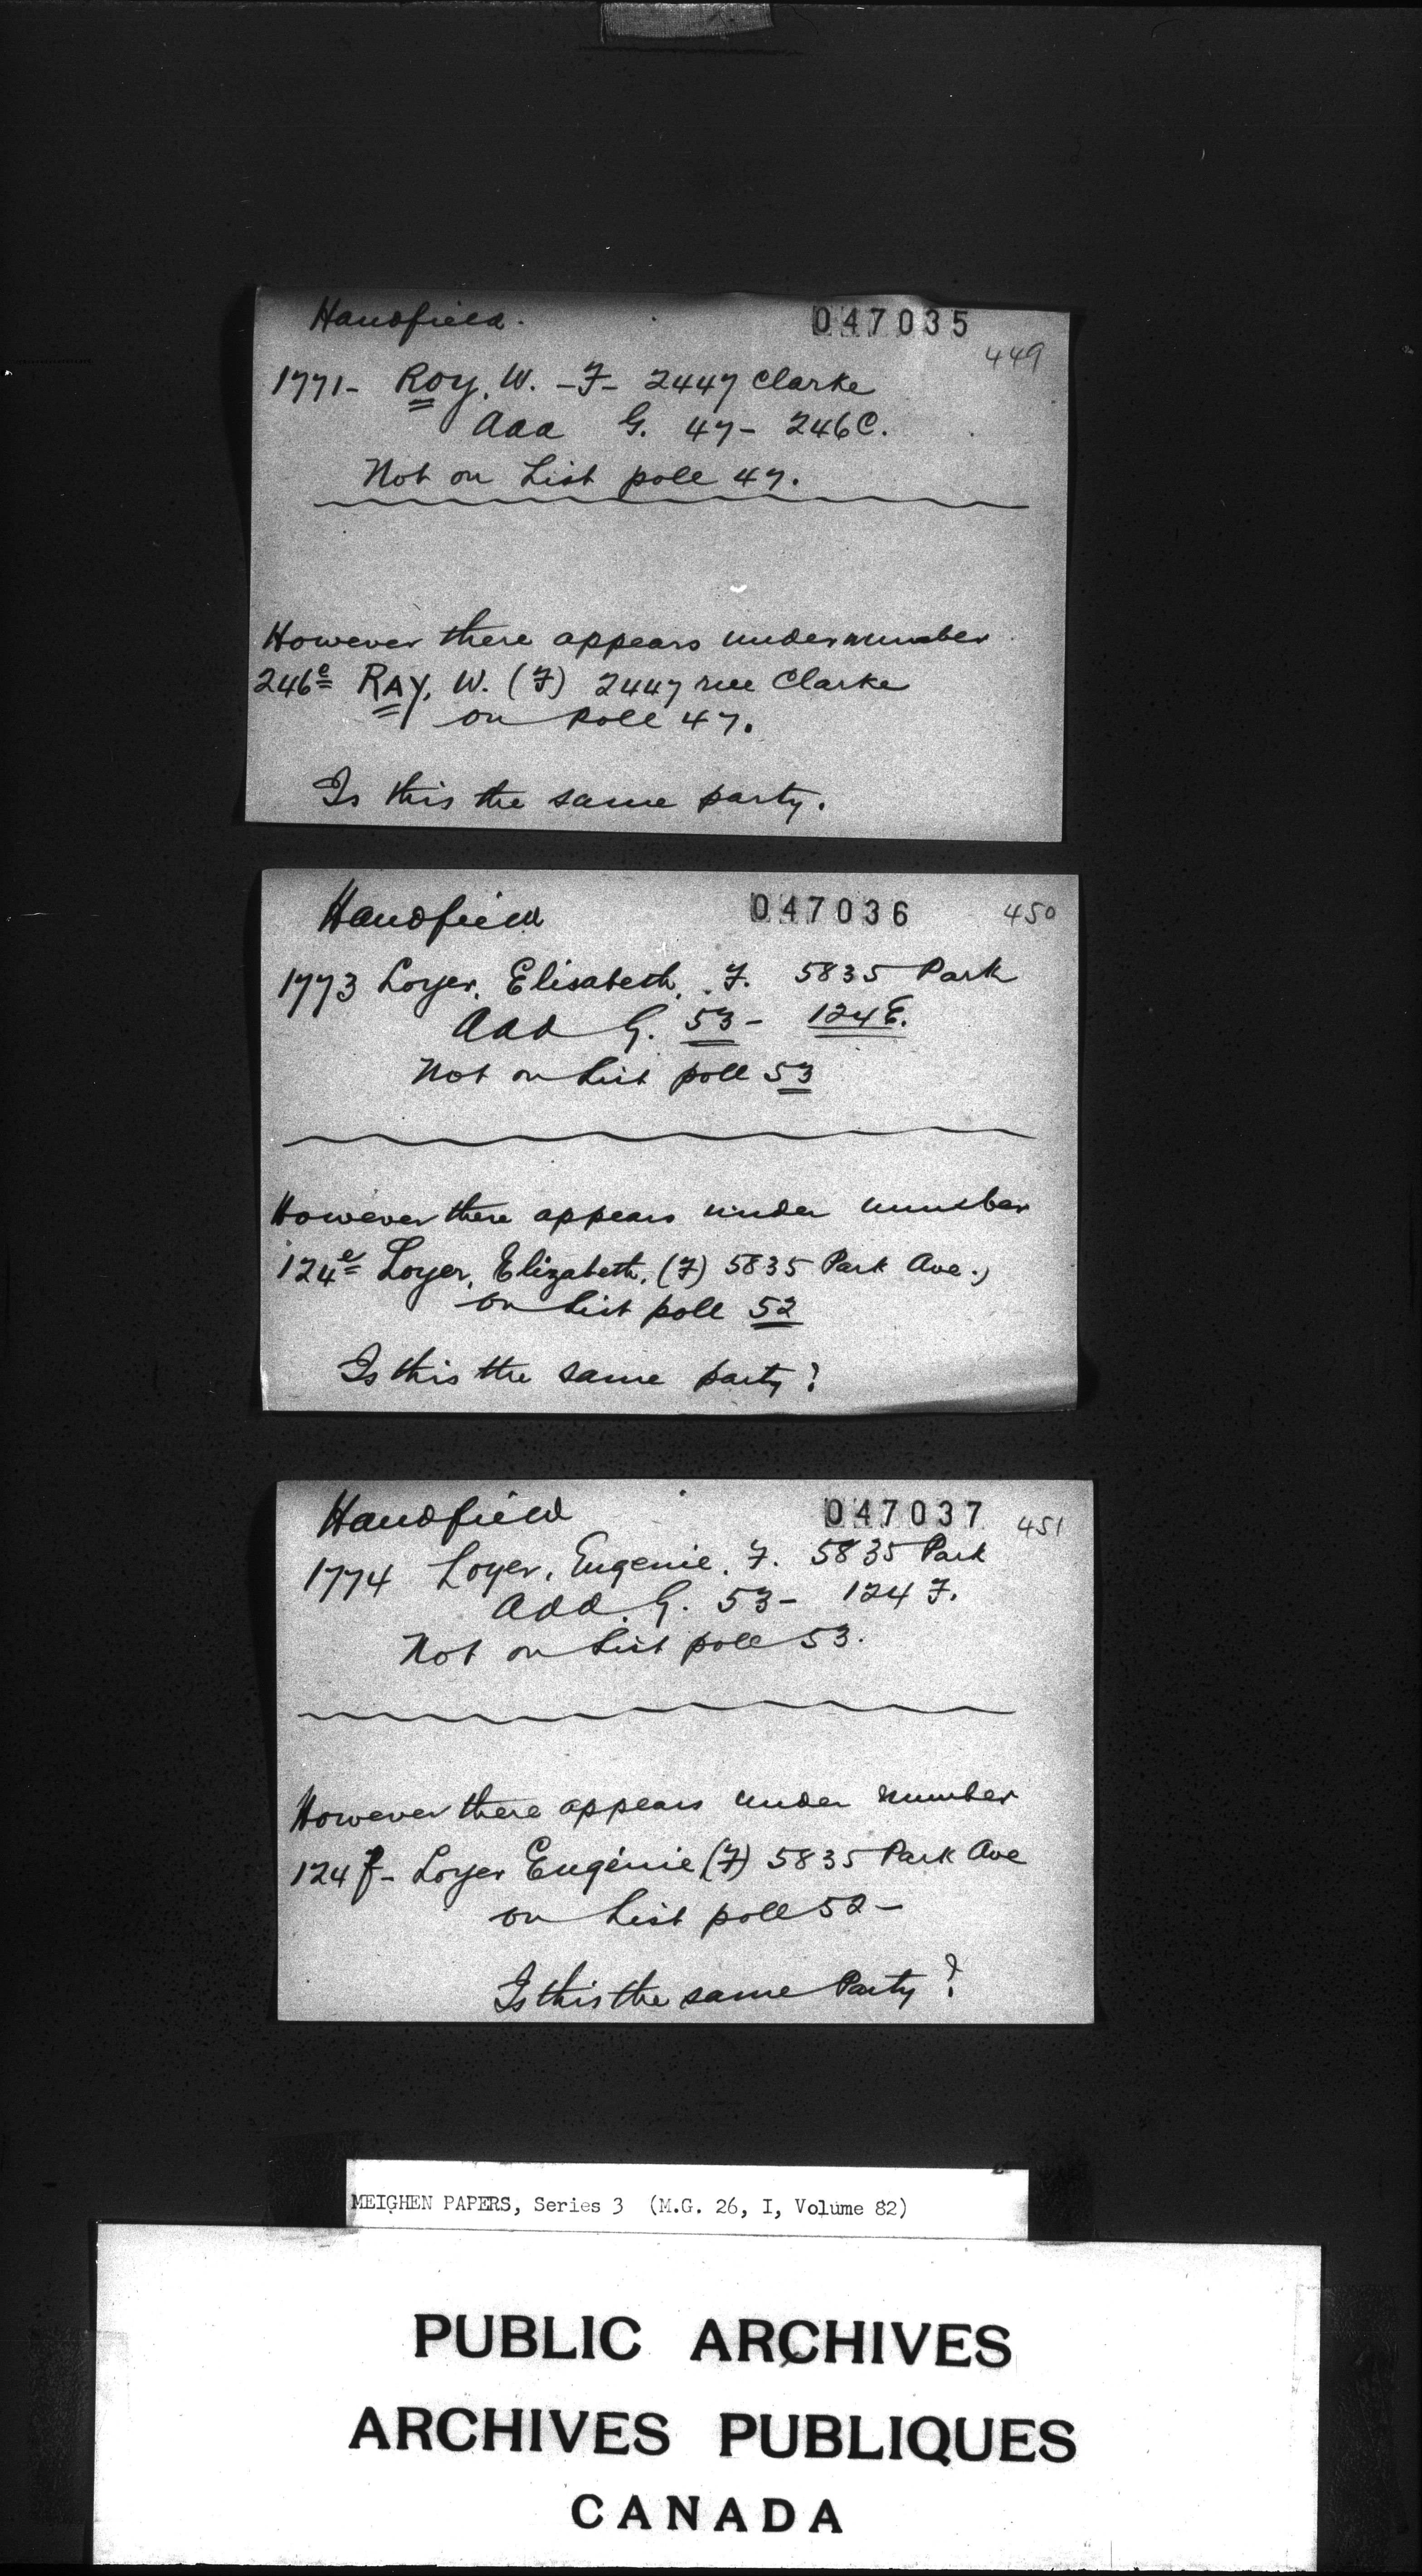 Handfield.
047035
449
1771- Roy, W. -F- 2447 Clarke
Add G. 47- 246C.
Not on List poll 47.
However there appears under number
246c RAY, W. (F) 2447 rue Clarke
on poll 47.
Is this the same party.
Handfield
047036
450
1773 Loyer, Elisabeth, F. 5835 Park
Add G. 53- 124E.
Not on List poll 53
However there appears under number
124e Loyer, Elizabeth, (F) 5835 Park Ave.,
on List poll 52
Is this the same party?
Handfield
047037
451
1774 Loyer, Eugenie, F. 5835 Park
Add. G. 53- 124 F.
Not on List poll 53.
However there appears under number
124 f- Loyer Eugénie (F) 5835 Park Ave
on List poll 52-
Is this the same Party?
MEIGHEN PAPERS, Series 3 (M.G. 26, I, Volume 82)
PUBLIC ARCHIVES
ARCHIVES PUBLIQUES
CANADA